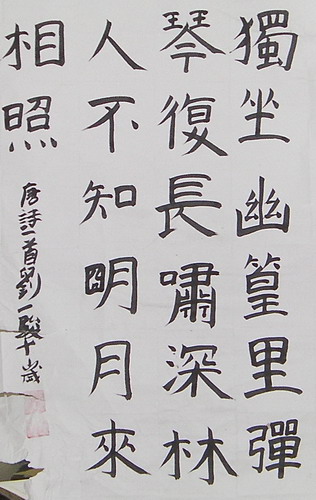 獨坐幽篁里彈
琴復長嘯深林
人不知明月來
相照
唐詩一首劉一駿十歲